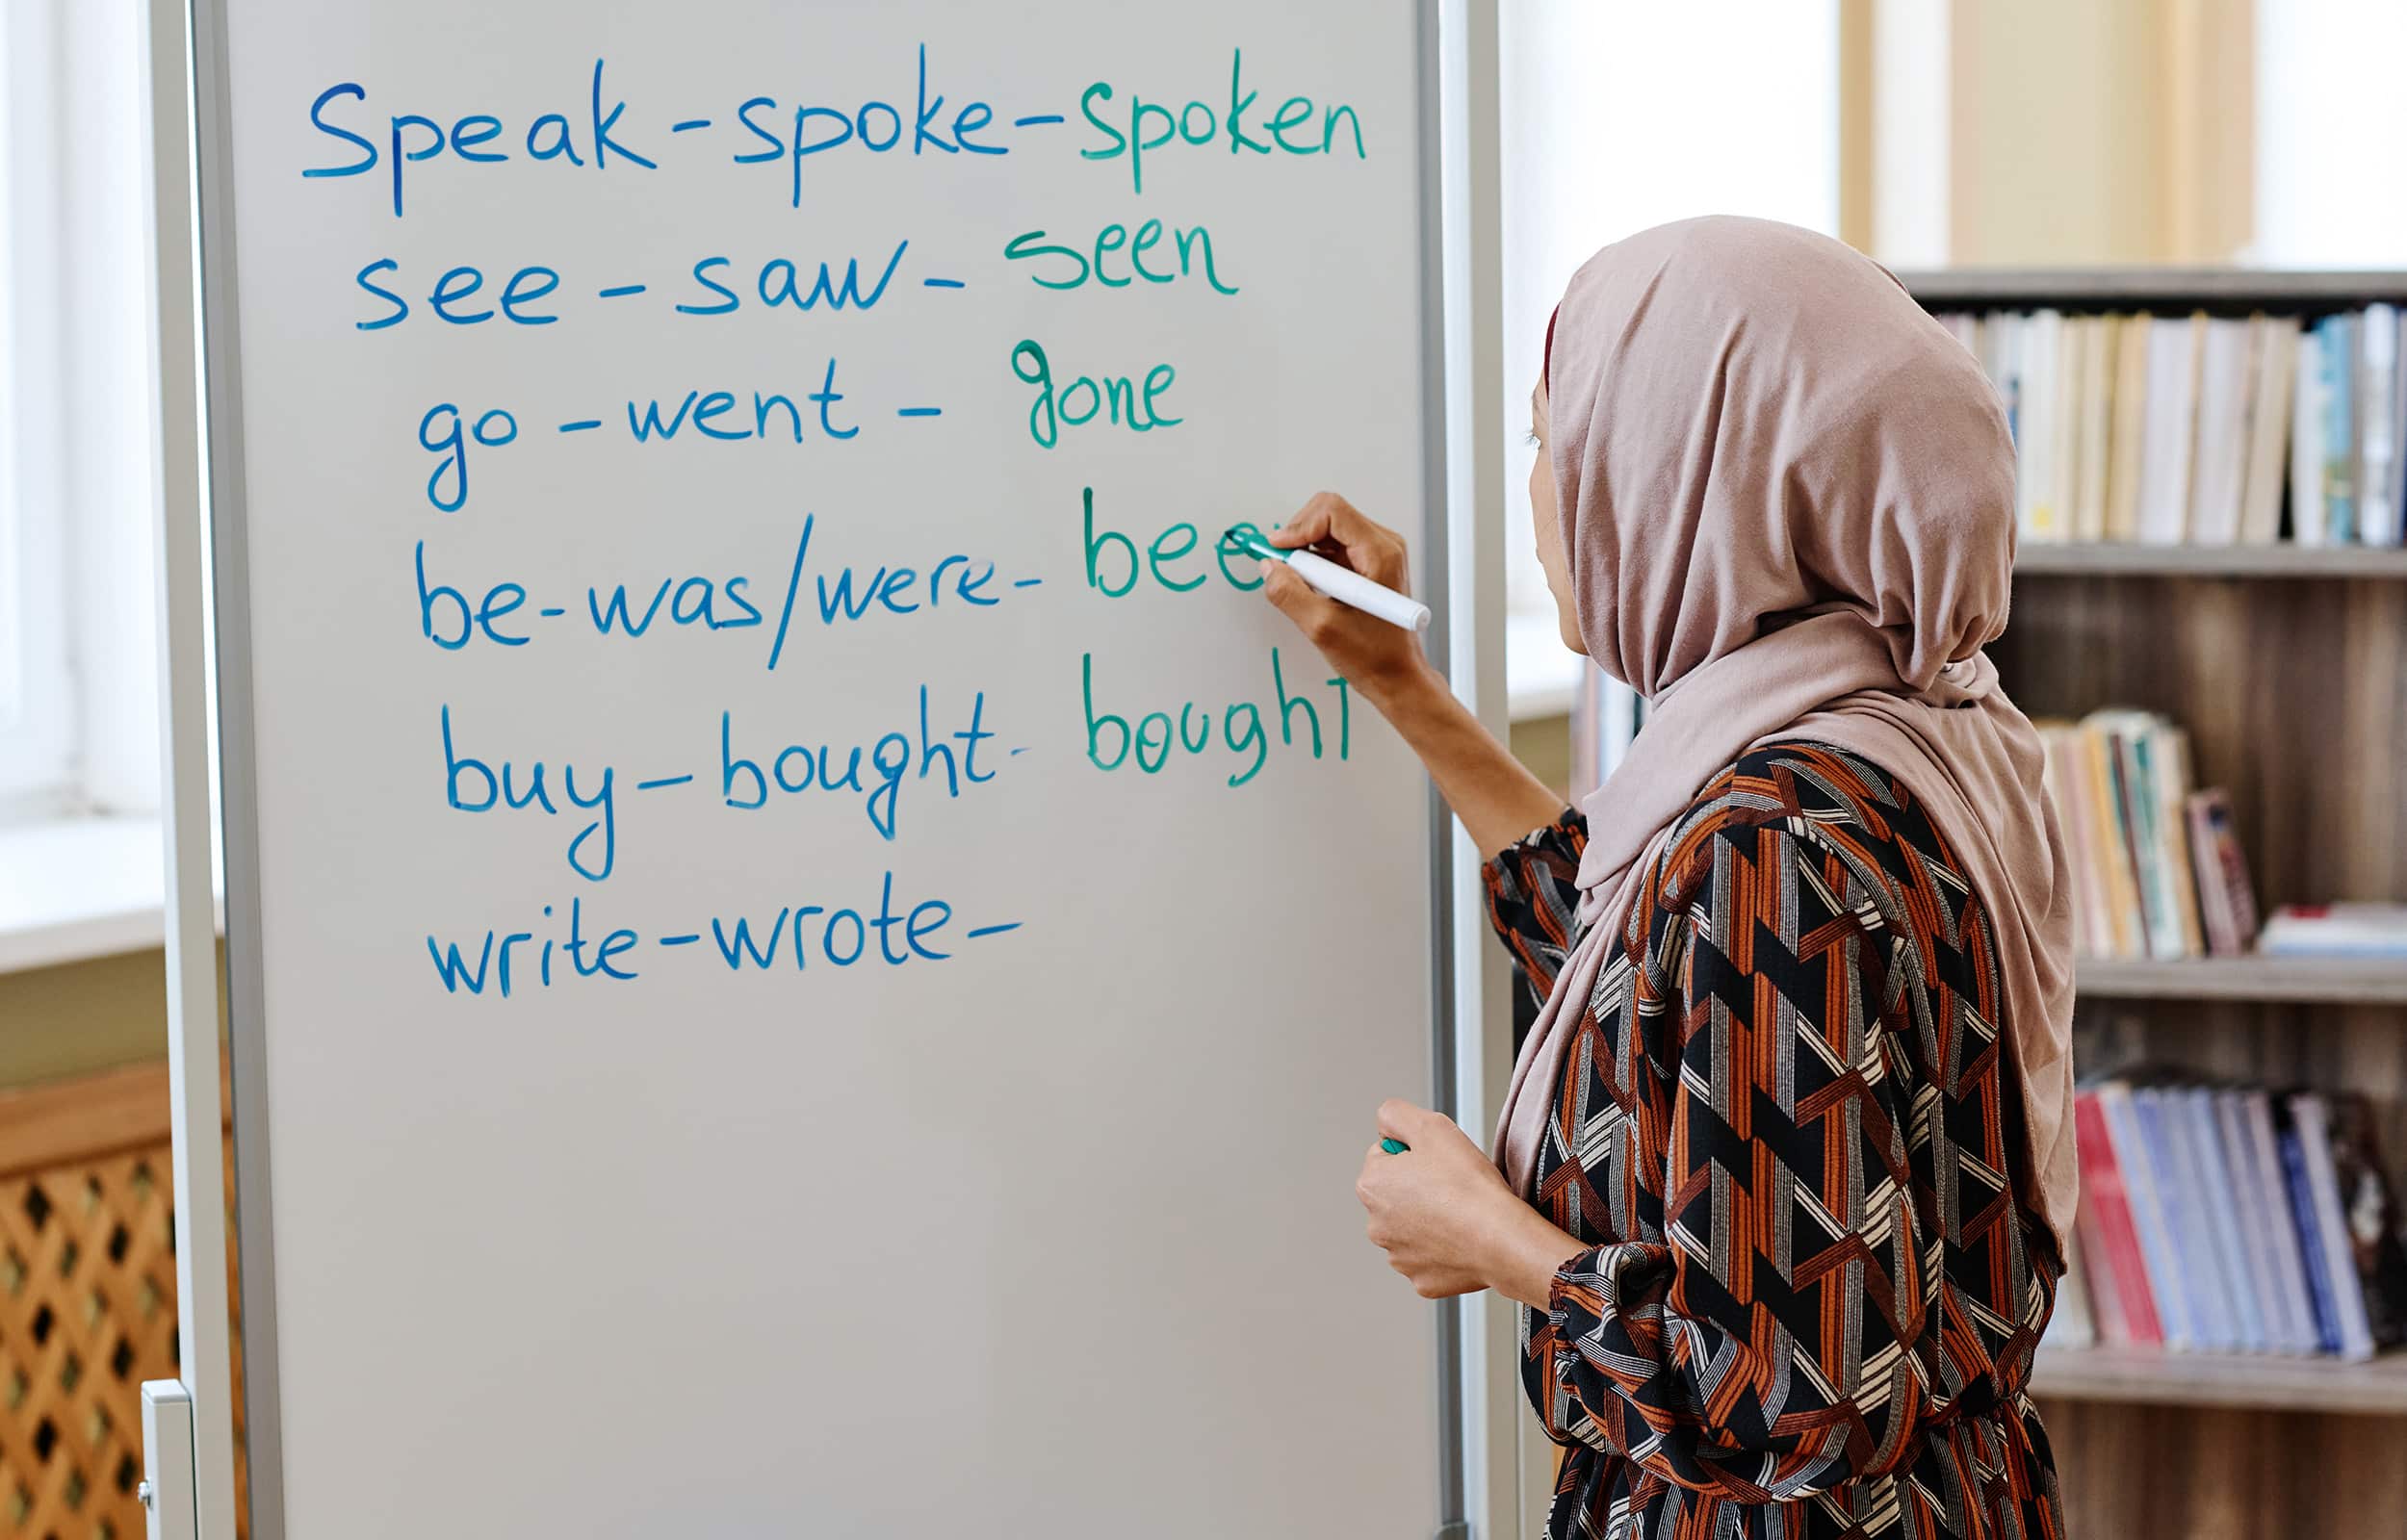 Speak - spoke - spoken
see - saw - seen
go - went - gone
be - was/were - bee
buy - bought - bought
write - wrote -